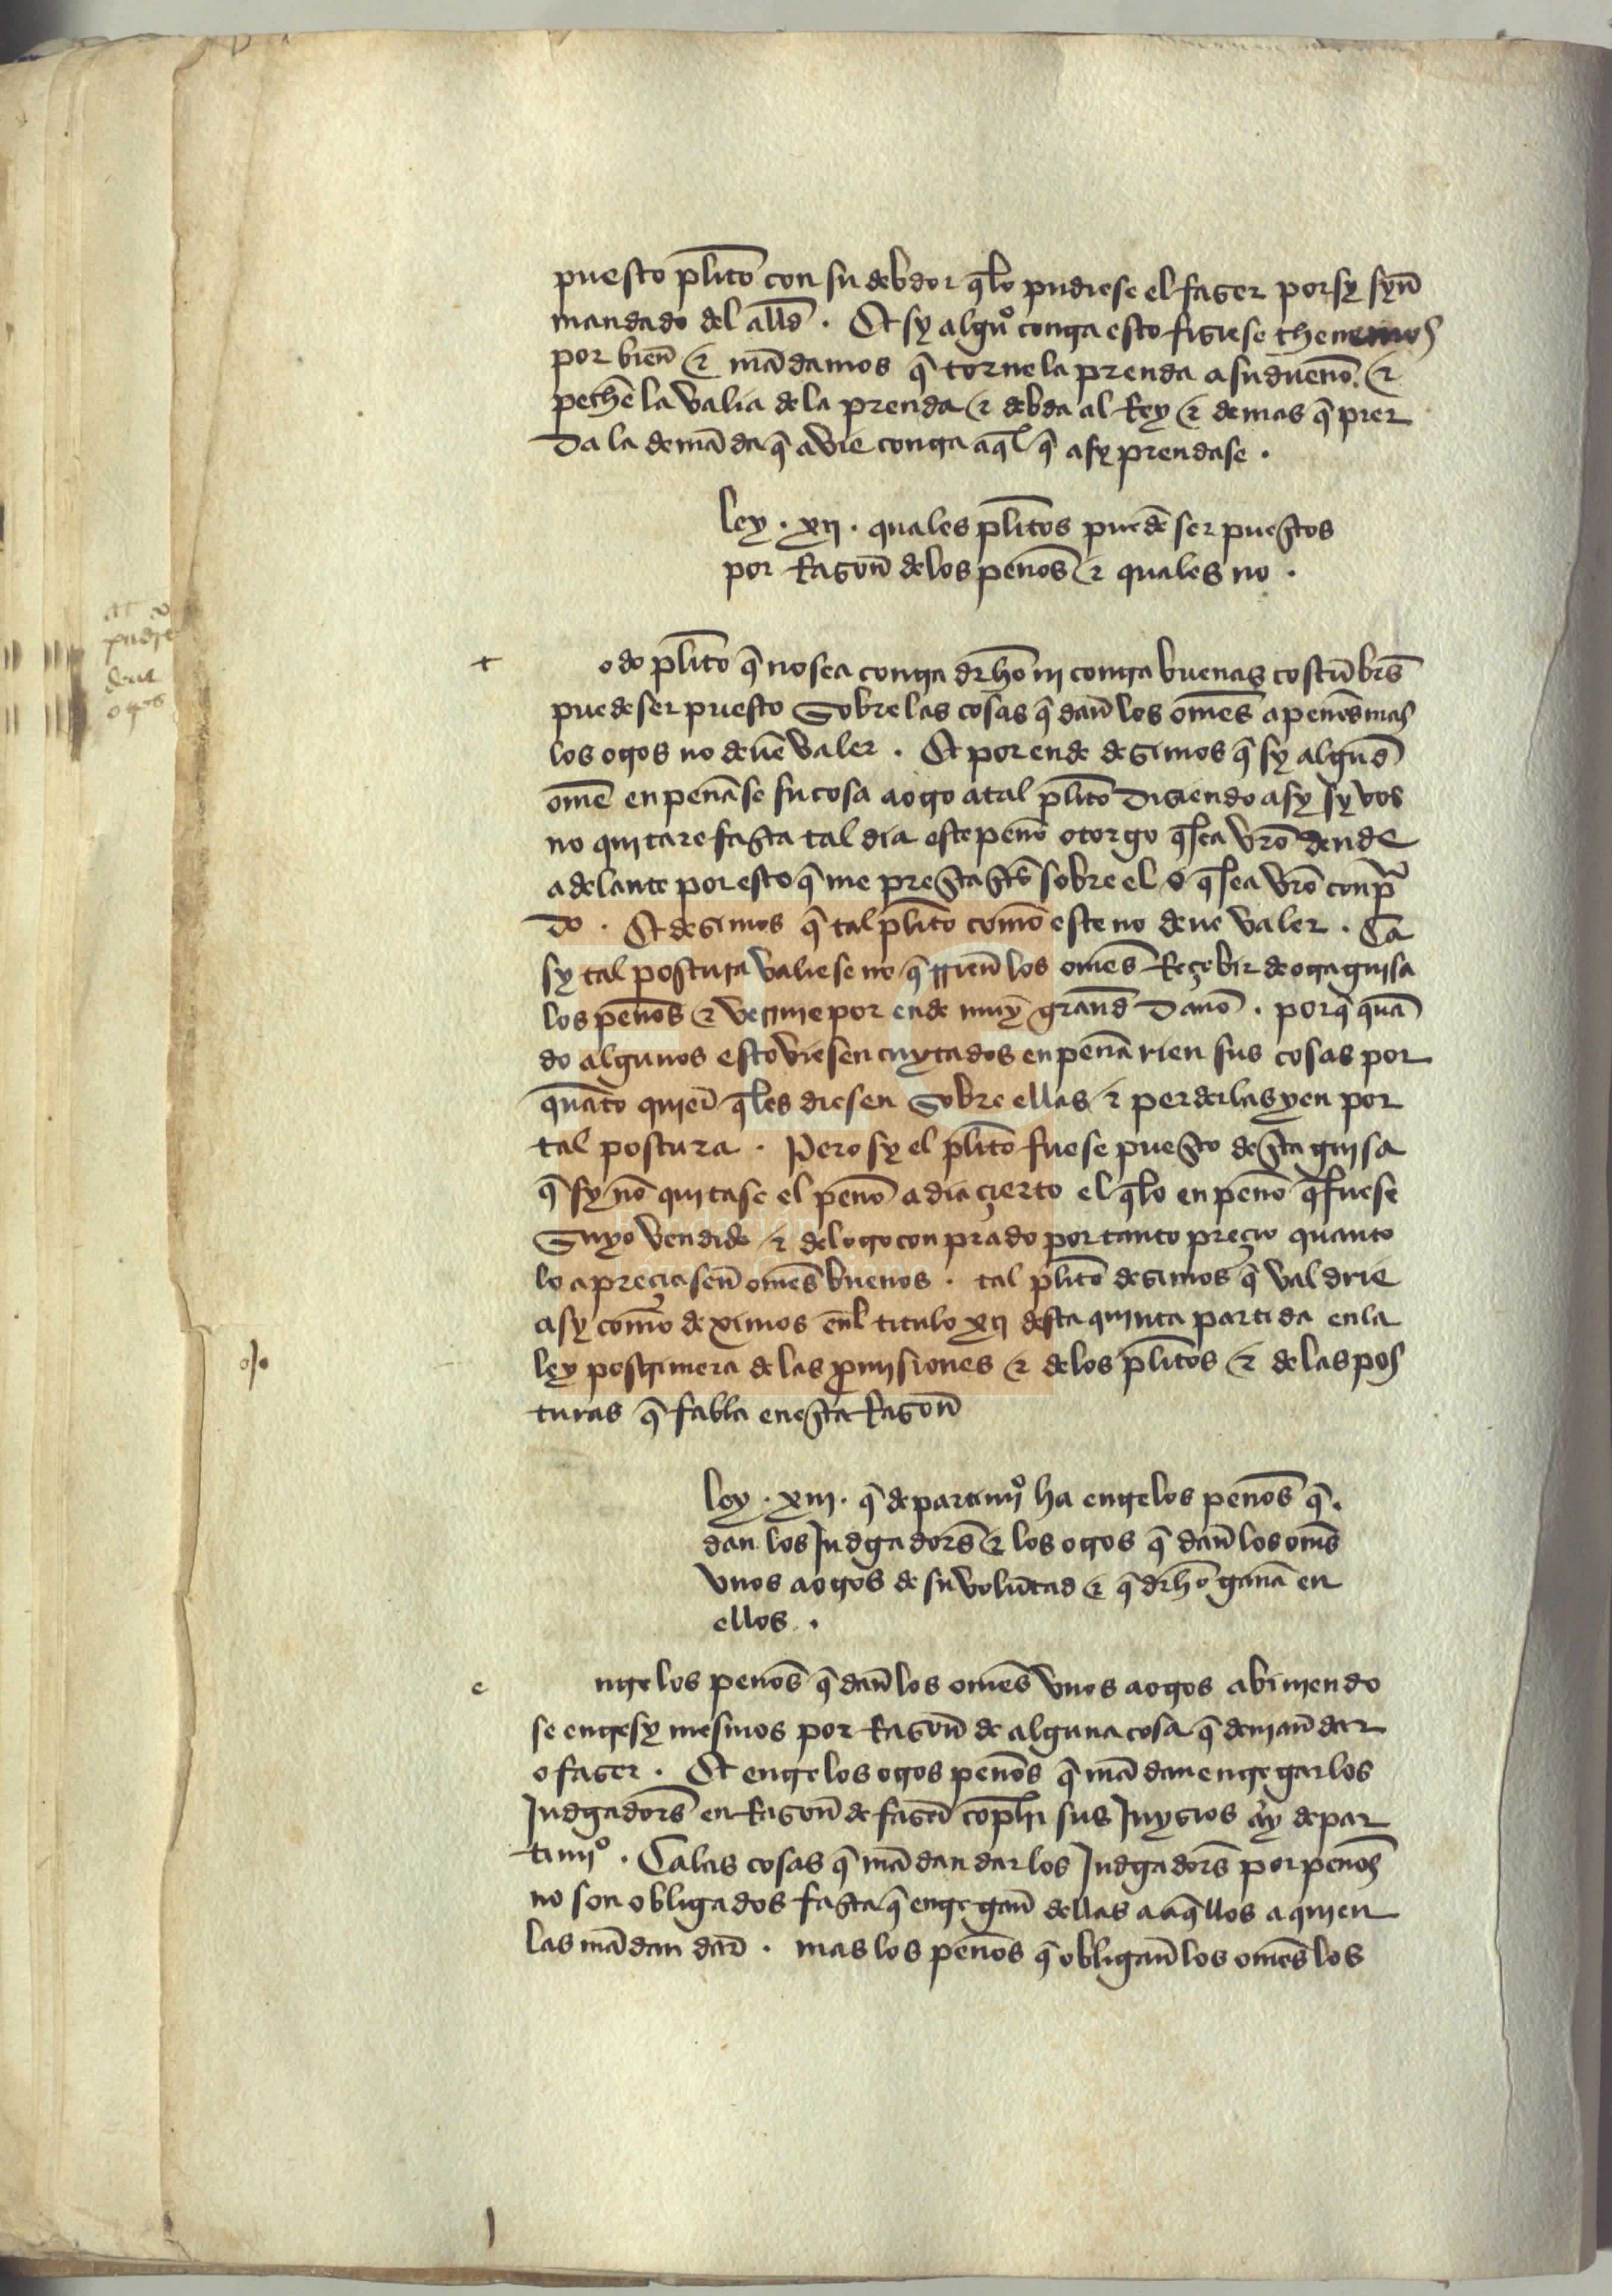 puesto plito con su debdor qlo pudiese el fazer por sy syn
mandado del alld . Et sy algũo contra esto fiziese thenemos
por bien & mãdamos q̃ torne la prenda a su dueno . &
peche la valia de la prenda & debda al Rey & demas q̃ pier
da la demãda q̃ avie contra aql q̃ asy prendase .
ley . xij . quales plitos puedẽ ser puestos
por Razon delos penos & quales no .
t odo plito q̃ no sea contra drho ni contra buenas costũbrs
puede ser puesto sobre las cosas q̃ dan los omes a penos mas
los otros no deuẽ valer . Et por ende dezimos q̃ sy algund
ome enpenãse su cosa a otro a tal plito diziendo asy sy vos
no quitare fasta tal dia este peno otorgo q̃ sea vro dende
adelante por esto q̃ me prestastes sobre el o q̃ sea vro conpra
do . Et dezimos q̃ tal plito como este no deue valer . Ca
sy tal postura valiese no q̃rrien los omes Reçebir de otra guisa
los penos & vernie por ende muy grand dano . porq̃ quan
do algunos estoviesen cuytados enpenãrien sus cosas por
quanto quier q̃les diesen sobre ellas & perderlasyen por
tal postura . Pero sy el plito fuese puesto desta guisa
q̃ sy no quitase el peno a dia çierto el qlo enpeno q̃ fuese
suyo vendido & del otro conprado por tanto preçio quanto
lo apreçiasen omes buenos . tal plito dezimos q̃ valdrie
asy como deximos enl titulo xij desta quinta partida enla
ley postrimera de las promisiones & delos plitos & de las pos
turas q̃ fabla enesta Razon
ley . xiij . q̃ departimio ha entre los penos q̃
dan los Judgadors & los otros q̃ dan los oms
vnos a otros de su volũtad & q̃ drho ganã en
ellos .
e ntre los penos q̃ dan los omes vnos a otros abiniendo
se entre sy mesmos por Razon de alguna cosa q̃ deuian dar
o fazer . Et entre los otros penos q̃ mãdan entregar los
Judgadors en Razon de fazer coplir sus Juyzios ay depar
timio . Ca las cosas q̃ mãdan dar los Judgadors por penos
no son obligados fasta q̃ entregan dellas a aq̃llos a quien
las mãdan dar . mas los penos q̃ obligan los omes los